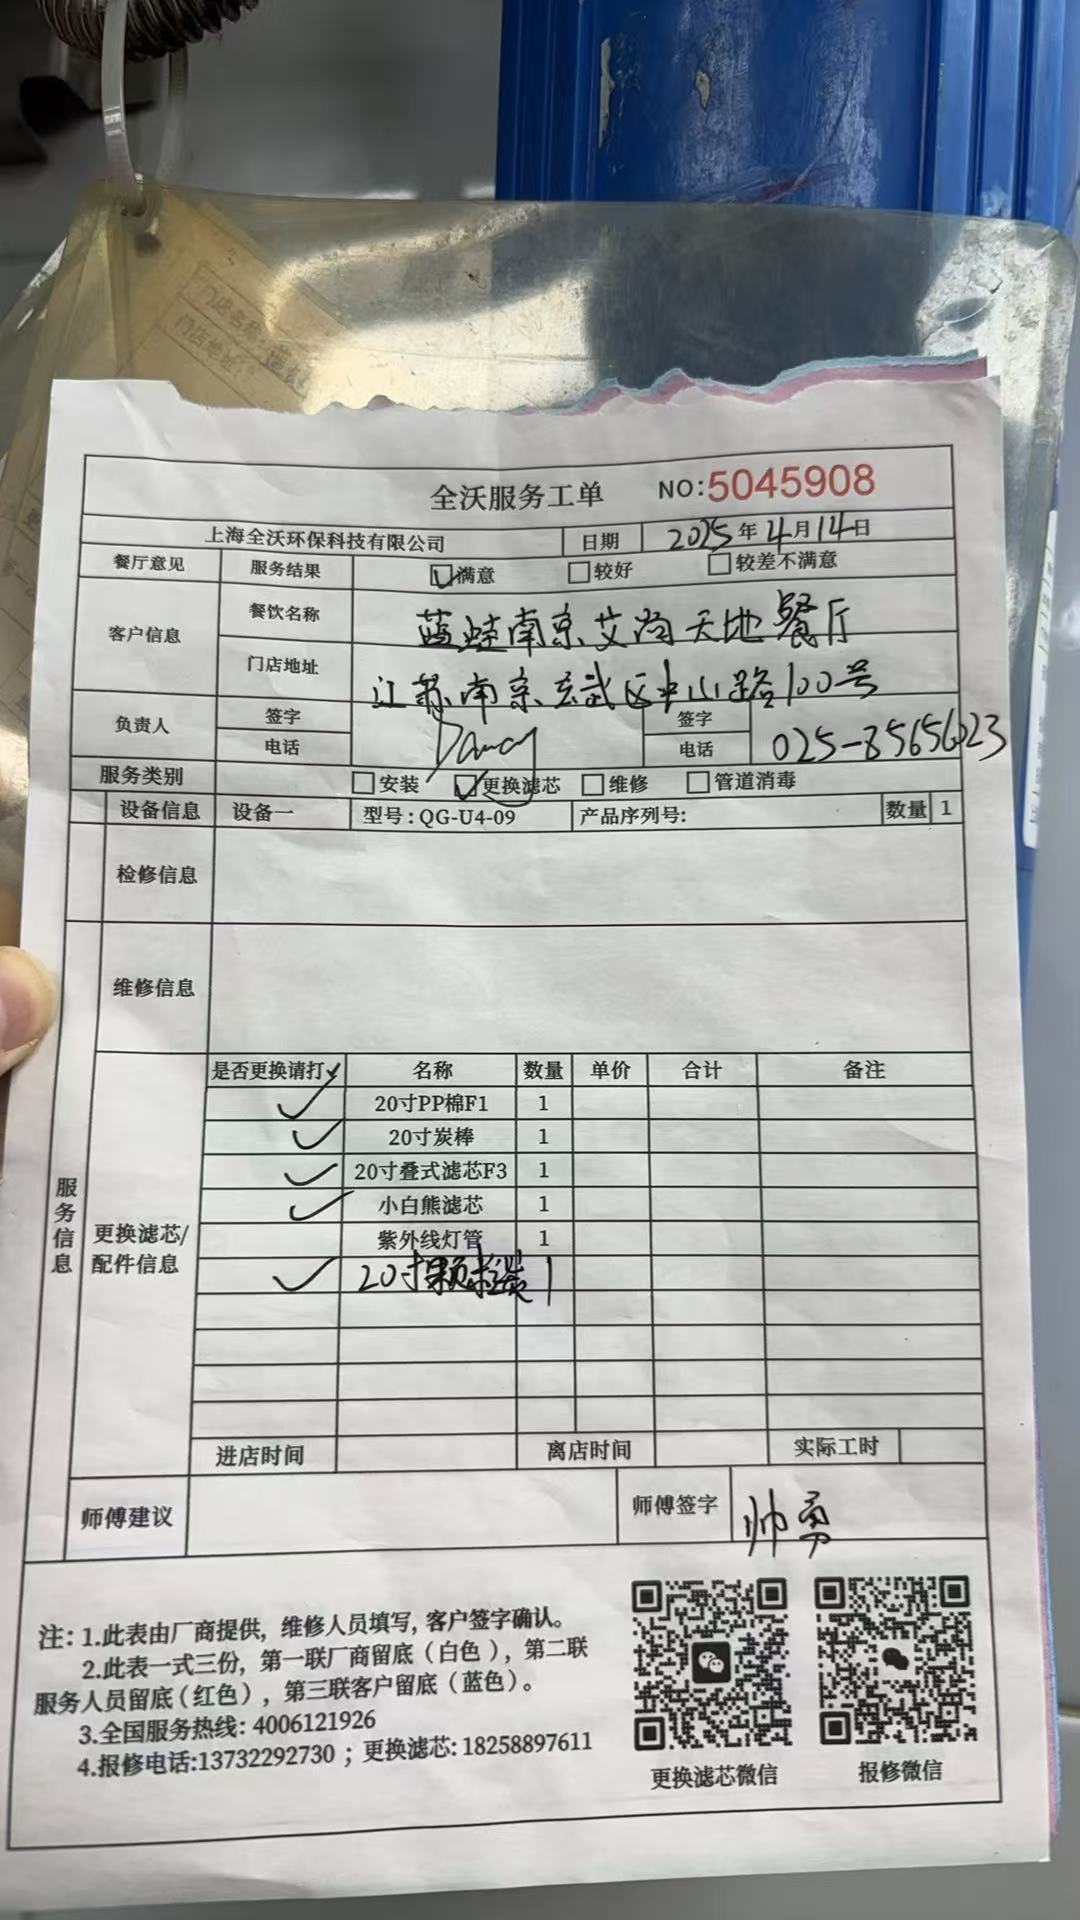 全沃服务工单 NO:5045908
上海全沃环保科技有限公司 日期 2025年4月14日
餐厅意见 服务结果 满意 较好 较差不满意
客户信息 餐饮名称 蓝蛙南京艾尚天地餐厅
门店地址 江苏南京玄武区中山路100号
负责人 签字 Dancy 签字
电话 电话 025-85656023
服务类别 安装 更换滤芯 维修 管道消毒
设备信息 设备一 型号:QG-U4-09 产品序列号: 数量 1
检修信息
维修信息
服务信息
更换滤芯/配件信息
是否更换请打✓ 名称 数量 单价 合计 备注
✓ 20寸PP棉F1 1
✓ 20寸炭棒 1
✓ 20寸叠式滤芯F3 1
✓ 小白熊滤芯 1
紫外线灯管 1
✓ 20寸颗粒炭 1
进店时间 离店时间 实际工时
师傅建议 师傅签字 帅勇
注: 1.此表由厂商提供, 维修人员填写, 客户签字确认。
2.此表一式三份, 第一联厂商留底(白色), 第二联
服务人员留底(红色), 第三联客户留底(蓝色)。
3.全国服务热线: 4006121926
4.报修电话:13732292730 ; 更换滤芯: 18258897611
更换滤芯微信 报修微信